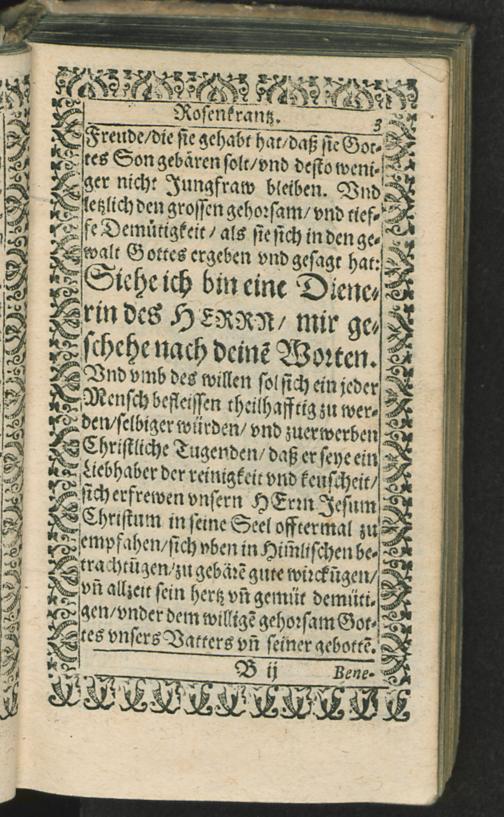 Rosenkrantz.
3
Freude/die sie gehabt hat/daß sie Got-
tes Son gebären solt/vnd desto weni-
ger nicht Jungfraw bleiben. Vnd
letzlich den grossen gehorsam/ vnd tief-
fe Demütigkeit/ als sie sich in den ge-
walt Gottes ergeben vnd gesagt hat:
Siehe ich bin eine Diene-
rin des HERRN/ mir ge-
schehe nach deinē Worten.
Vnd vmb des willen sol sich ein jeder
Mensch befleissen theilhafftig zu wer-
den/selbiger würden/ vnd zuerwerben
Christliche Tugenden/ daß er seye ein
Liebhaber der reinigkeit vnd keuscheit/
sich erfrewen vnsern HErrn Jesum
Christum in seine Seel offtermal zu
empfahen/sich vben in Him̄lischen be-
trachtūgen/zu gebärē gute wirckūgen/
vn̄ allzeit sein hertz vn̄ gemüt demüti-
gen/vnder dem willigē gehorsam Got-
tes vnsers Vatters vn̄ seiner gebottē.
B ij
Bene-